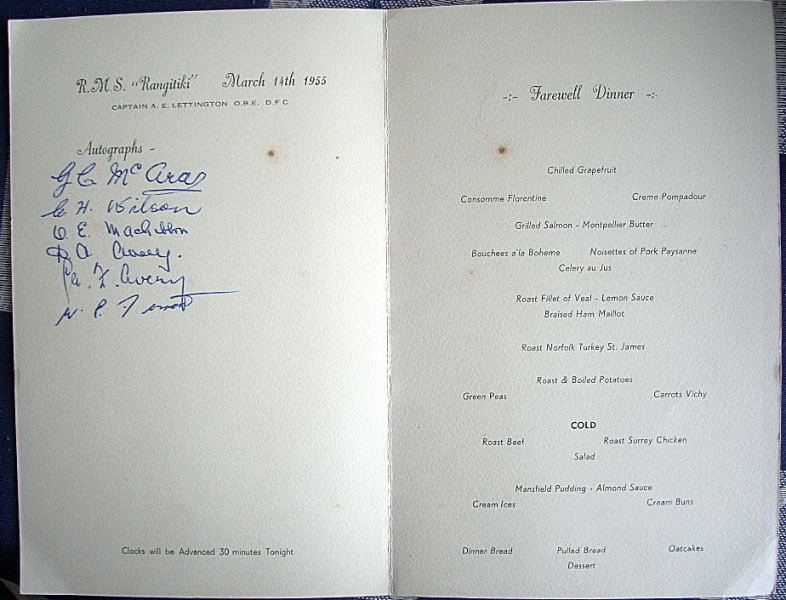 R.M.S. "Rangitiki" March 14th 1955
CAPTAIN A. E. LETTINGTON O.B.E. D.F.C
Autographs -
G C McAra
C H. Wilson
E. MacGibbon
A Avery.
F. Avery
-:- Farewell Dinner -:-
Chilled Grapefruit
Consomme Florentine Creme Pompadour
Grilled Salmon - Montpellier Butter
Bouchees a'la Boheme Noisettes of Pork Paysanne
Celery au Jus
Roast Fillet of Veal - Lemon Sauce
Braised Ham Maillot
Roast Norfolk Turkey St. James
Roast & Boiled Potatoes
Green Peas Carrots Vichy
COLD
Roast Beef Roast Surrey Chicken
Salad
Mansfield Pudding - Almond Sauce
Cream Ices Cream Buns
Dinner Bread Pulled Bread Oatcakes
Dessert
Clocks will be Advanced 30 minutes Tonight